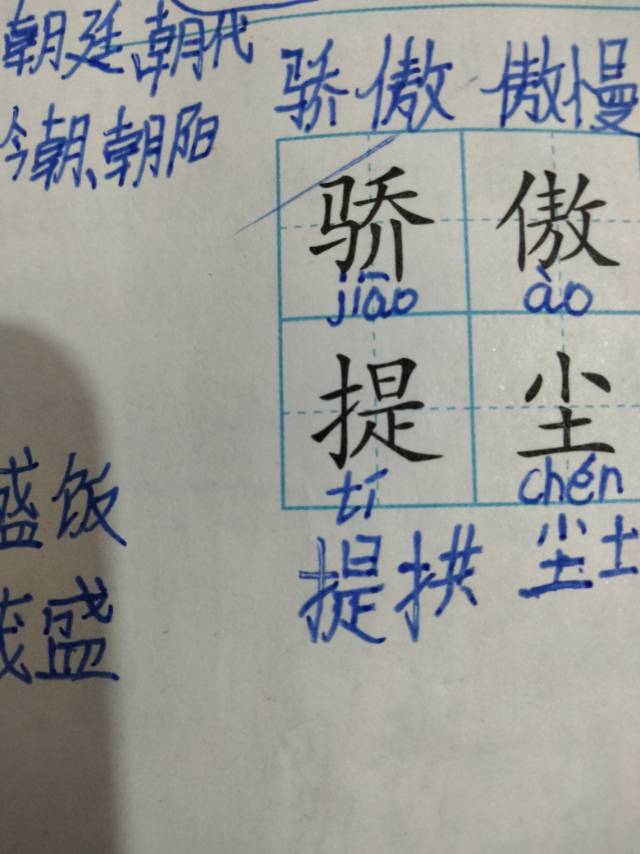 朝廷、朝代
今朝、朝阳
骄傲 傲慢
骄 傲
jiāo ào
提 尘
tí chén
提拱 尘土
盛饭
茂盛